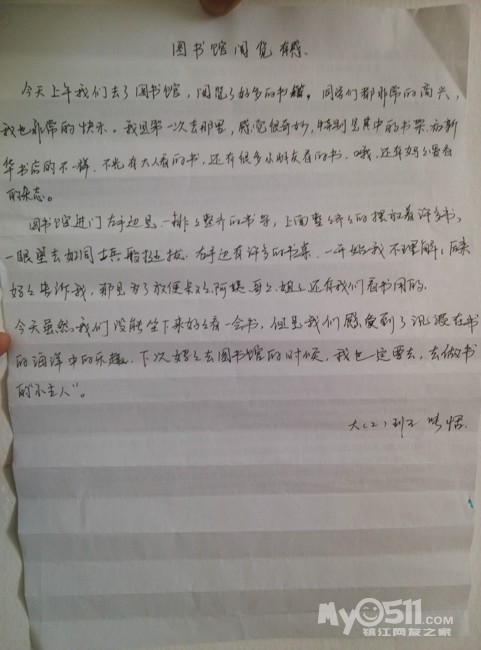 图书馆阅览有感
今天上午我们去了图书馆，阅览了好多的书籍。同学们都非常的高兴，
我也非常的快乐。我是第一次去那里，感觉很奇妙，特别是其中的书架，和新
华书店的不一样，不光有大人看的书，还有很多小朋友看的书，哦，还有妈妈要看
的杂志。
图书馆进门左手边是一排々整齐的书架，上面整々齐々的摆放着许多书，
一眼望去如同士兵般挺拔。右手边有许多的书桌，一开始我不理解，后来
妈々告诉我，那是为了方便叔々阿姨哥々姐々还有我们看书用的。
今天虽然我们没能坐下来好々看一会书，但是我们感受到了沉浸在书
的海洋中的乐趣，下次妈々去图书馆的时候，我也一定要去，去做书
的“小主人”。
大（二）班
My0511.com
镇江网友之家